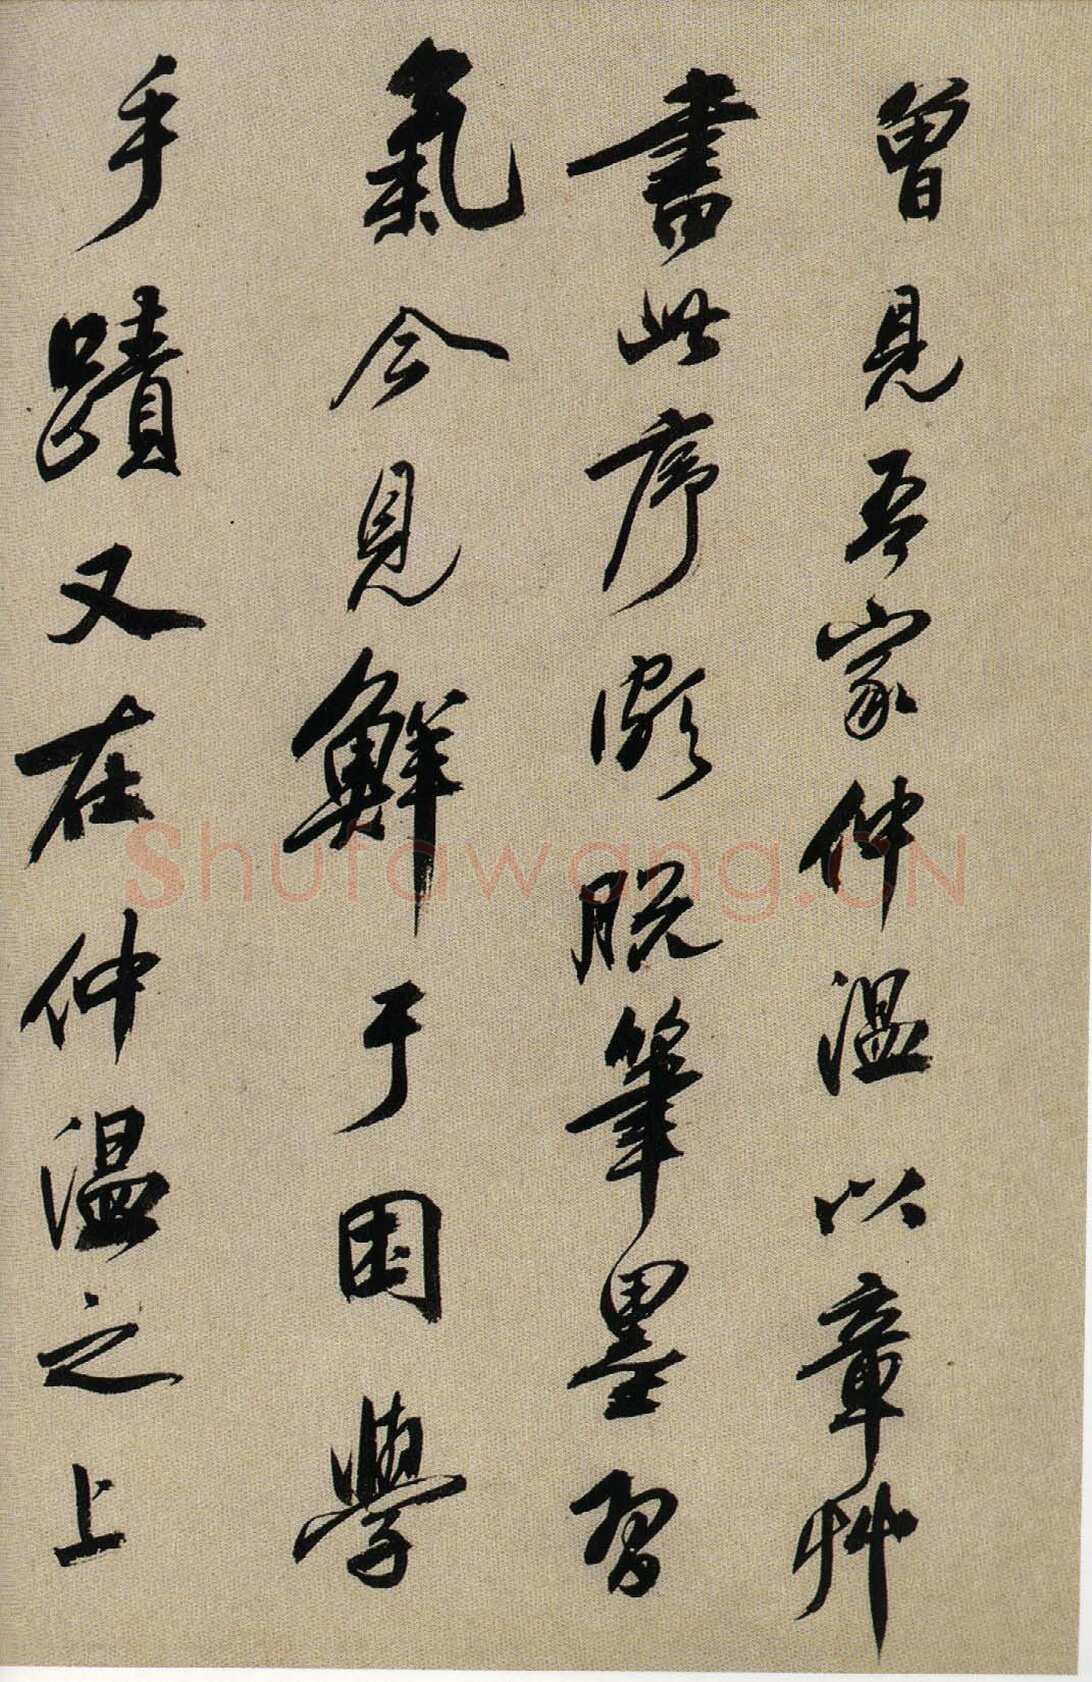 曾見吾家仲温以章艸
書此序激脱筆墨習
氣今見鮮于困學
手蹟又在仲温之上
Shufawang.CN